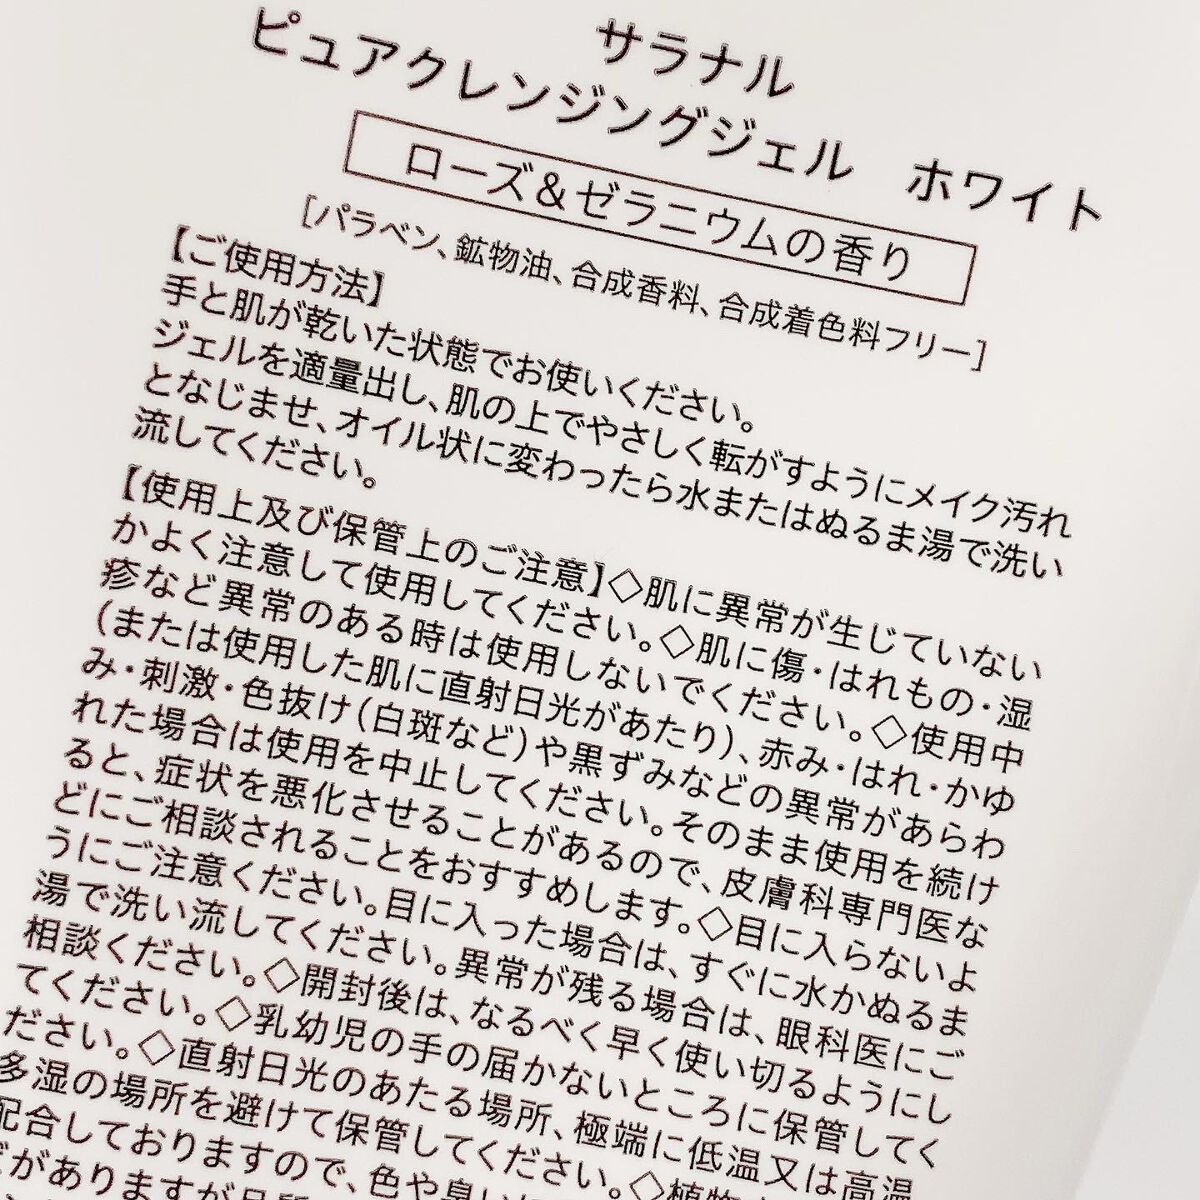 サラナル
ピュアクレンジングジェル　ホワイト
ローズ&ゼラニウムの香り
[パラベン、鉱物油、合成香料、合成着色料フリー]
【ご使用方法】
手と肌が乾いた状態でお使いください。
ジェルを適量出し、肌の上でやさしく転がすようにメイク汚れ
となじませ、オイル状に変わったら水またはぬるま湯で洗い
流してください。
【使用上及び保管上のご注意】◇肌に異常が生じていない
かよく注意して使用してください。◇肌に傷・はれもの・湿
疹など異常のある時は使用しないでください。◇使用中
(または使用した肌に直射日光があたり)、赤み・はれ・かゆ
み・刺激・色抜け(白斑など)や黒ずみなどの異常があらわ
れた場合は使用を中止してください。そのまま使用を続け
ると、症状を悪化させることがあるので、皮膚科専門医な
どにご相談されることをおすすめします。◇目に入らないよ
うにご注意ください。目に入った場合は、すぐに水かぬるま
湯で洗い流してください。異常が残る場合は、眼科医にご
相談ください。◇開封後は、なるべく早く使い切るようにし
てください。◇乳幼児の手の届かないところに保管してく
ださい。◇直射日光のあたる場所、極端に低温又は高温
多湿の場所を避けて保管してください。◇植物
配合しておりますので、色や臭いに
がありますが品質